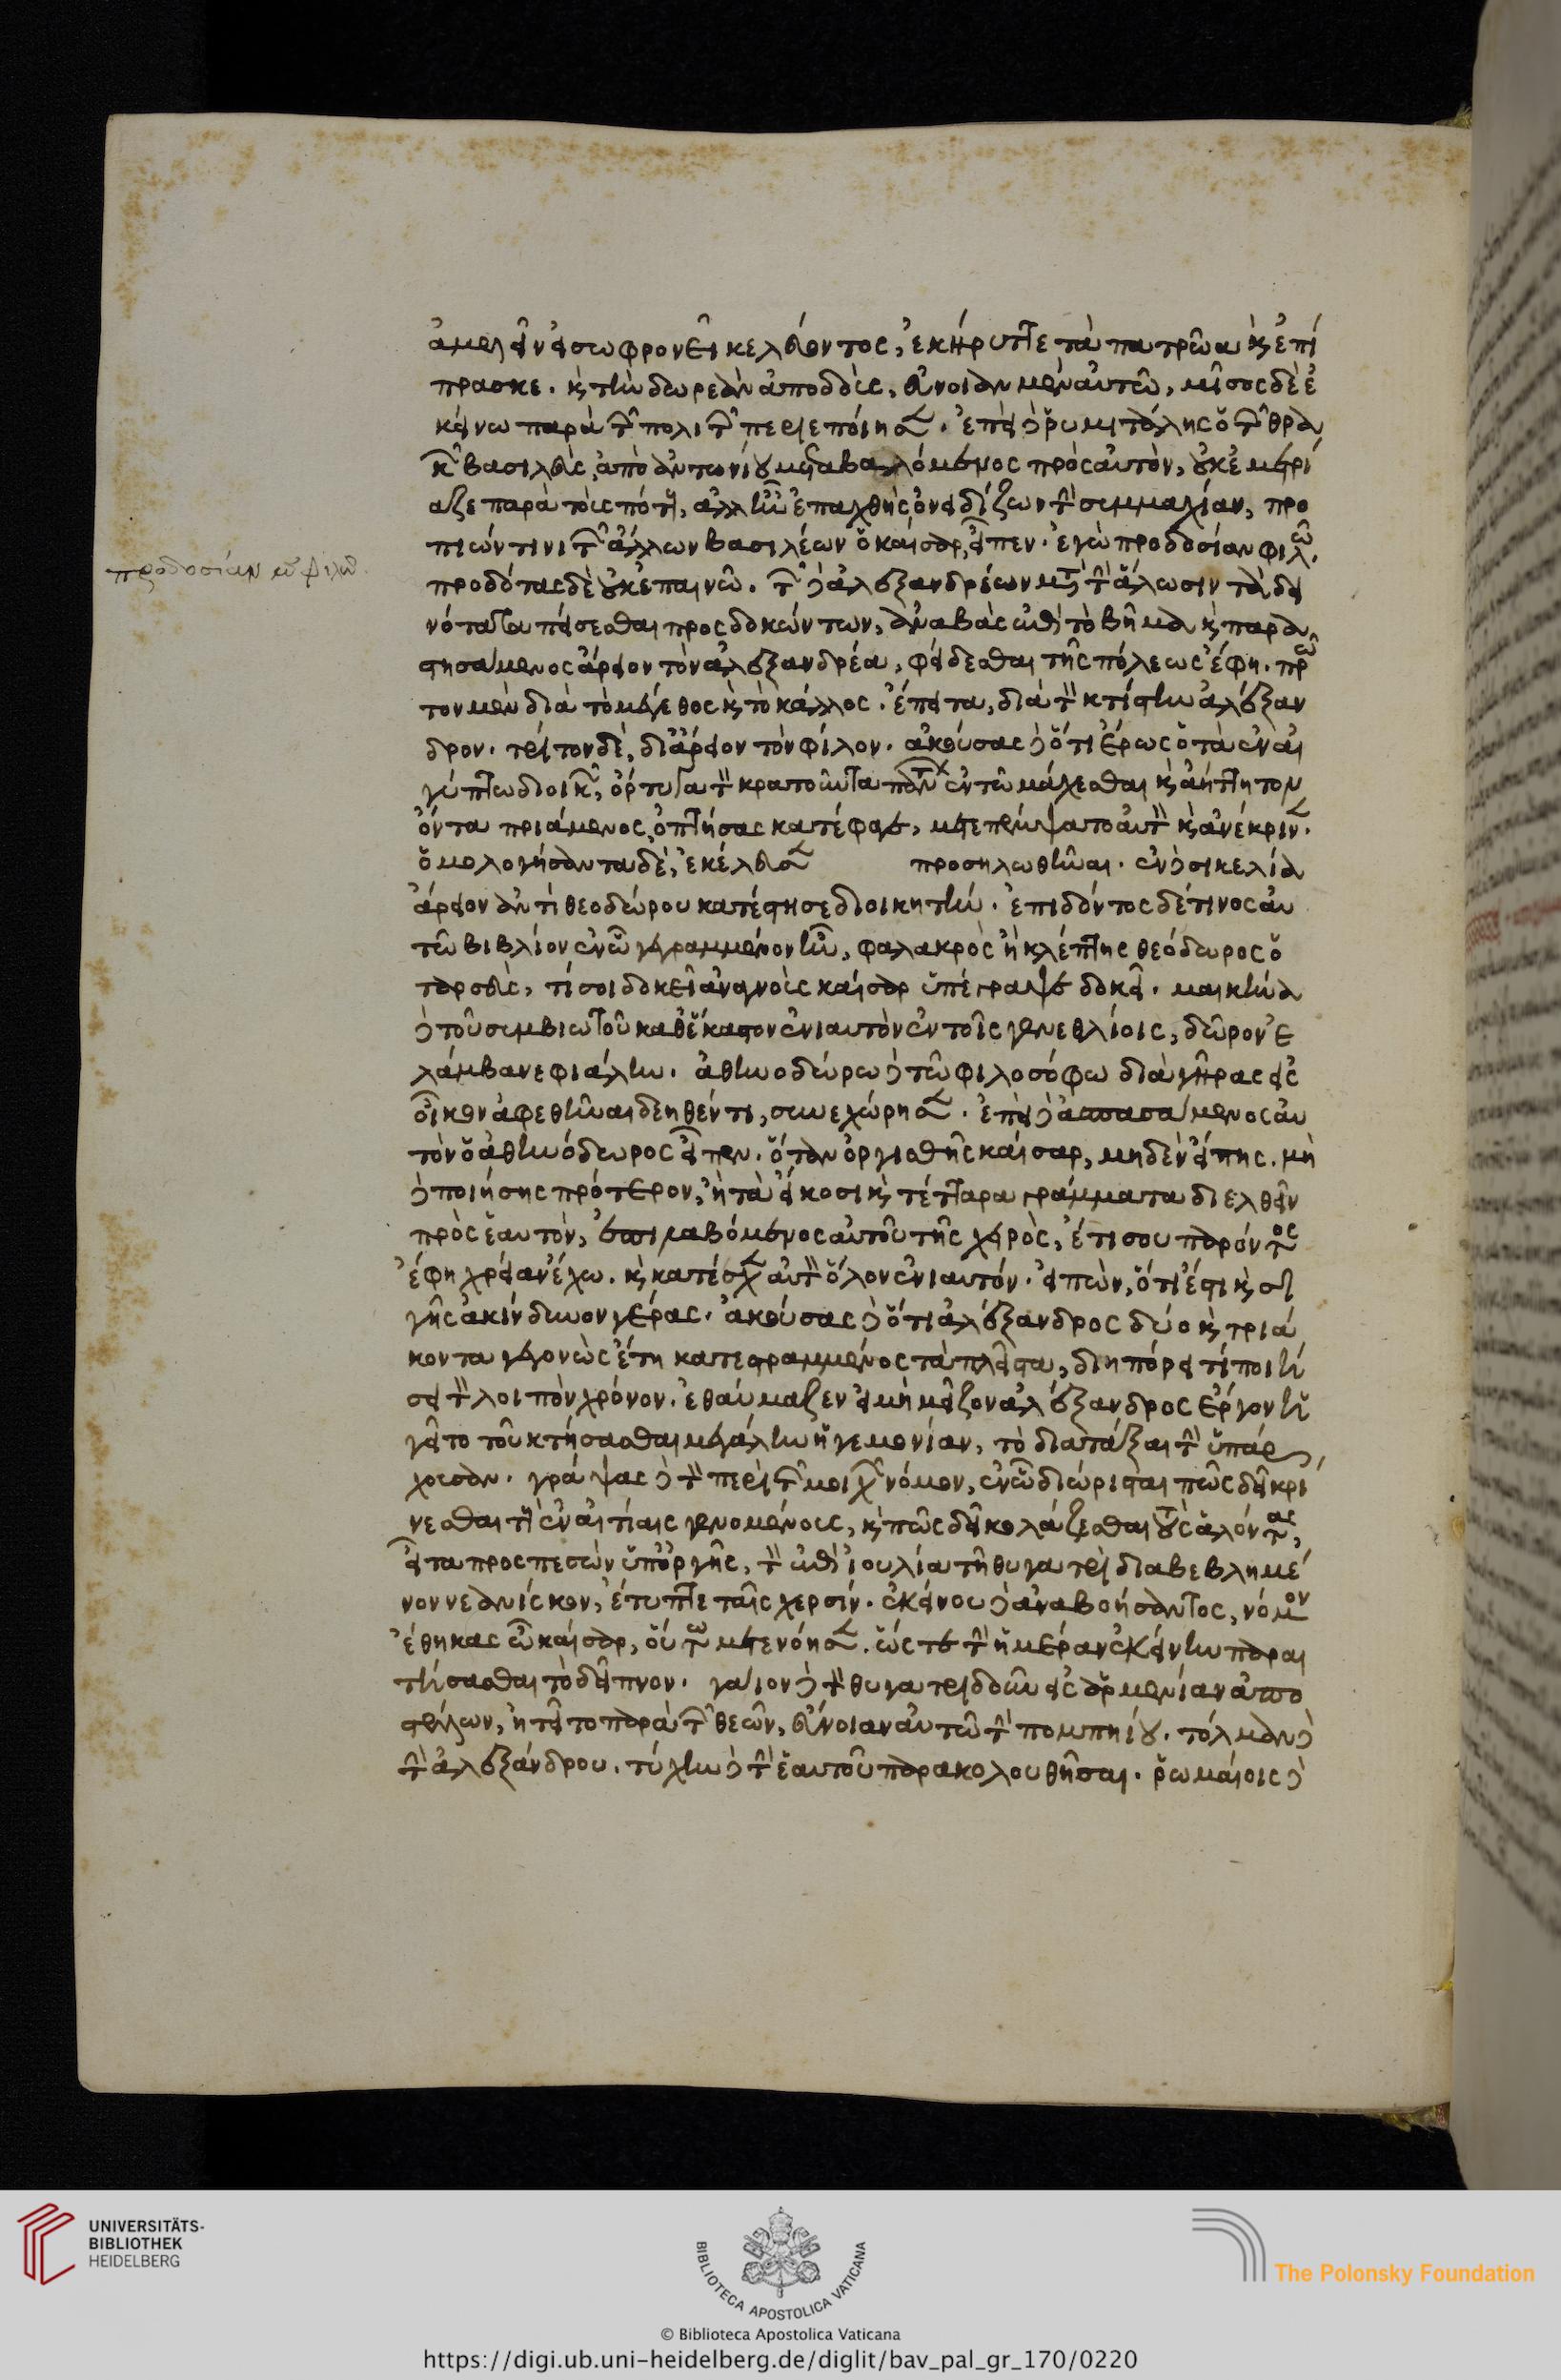 ἀμελεῖν εἰ σωφρονεῖ κελεύοντος, ἐκήρυττε τὰ πατρῶα κ ἐπί
πρασκε. κ τὴν δωρεὰν ἀποδοὺς, εὔνοιαν μὲν αὐτῶ, μῖσος δὲ ἐ
κείνω παρὰ τῶν πολιτῶν περιεποίησεν. ἐπεὶ δὲ ῥυμιτάλκης ὁ τῶν θρα
κῶν βασιλεὺς, ἀπὸ ἀντωνίου μεταβαλλόμενος πρὸς αὐτὸν, οὐκ ἐμετρί
αζε παρὰ τοὺς πότους, ἀλλ' ἦν ἐπαχθὴς ὀνειδίζων τὴν συμμαχίαν, προ
πιών τινι τῶν ἄλλων βασιλέων ὁ καίσαρ, εἶπεν. ἐγὼ προδοσίαν φιλῶ.
προδότας δὲ οὐκ ἐπαινῶ. τῶν δὲ ἀλεξανδρέων μετὰ τὴν ἅλωσιν τὰ δει
νότατα πείσεσθαι προσδοκώντων, ἀναβὰς ἐπὶ τὸ βῆμα κ παρα
στησάμενος ἄρειον τὸν ἀλεξανδρέα, φείδεσθαι τῆς πόλεως ἔφη. πρῶ
τον μὲν διὰ τὸ μέγεθος κ τὸ κάλλος. ἔπειτα, διὰ τὸν κτίστην ἀλέξαν
δρον. τρίτον δὲ, δι' ἄρειον τὸν φίλον. ἀκούσας δὲ ὅτι ἔρως ὁ τὰ ἐν αἰ
γύπτω διοικῶν, ὄρτυγα τὸν κρατοῦντα πάντων ἐν τῶ μάχεσθαι κ ἀήττητον
ὄντα πριάμενος ὀπτήσας κατέφαγε, μετεπέμψατο αὐτὸν κ ἀνέκρινεν.
ὁμολογήσαντα δὲ, ἐκέλευσεν προσηλωθῆναι. ἐν δὲ σικελία
ἄρειον ἀντὶ θεοδώρου κατέστησε διοικητήν. ἐπιδόντος δέ τινος αὐ
τῶ βιβλίον ἐν ὧ γεγραμμένον ἦν, φαλακρὸς ἢ κλέπτης θεόδωρος ὁ
ταρσεὺς, τί σοι δοκεῖ ἀναγνοὺς καίσαρ ὑπέγραψε δοκεῖ. μαικήνα
δὲ τοῦ συμβιωτοῦ καθ' ἕκαστον ἐνιαυτὸν ἐν τοῖς γενεθλίοις, δῶρον ἐ
λάμβανε φιάλην. ἀθηνοδώρω δὲ τῶ φιλοσόφω διὰ γῆρας εἰς
οἶκον ἀφεθῆναι δεηθέντι, συνεχώρησεν. ἐπεὶ δὲ ἀσπασάμενος αὐ
τὸν ὁ ἀθηνόδωρος εἶπεν. ὅταν ὀργισθῆς καίσαρ, μηδὲν εἴπης. μὴ
δὲ ποιήσης πρότερον, ἢ τὰ εἴκοσι κ τέτταρα γράμματα διελθεῖν
πρὸς ἑαυτὸν, ἐπιλαβόμενος αὐτοῦ τῆς χειρὸς, ἔτι σου παρόντος
ἔφη χρείαν ἔχω. κ κατέσχεν αὐτὸν ὅλον ἐνιαυτόν. εἰπὼν, ὅτι ἔστι κ σι
γῆς ἀκίνδυνον γέρας. ἀκούσας δὲ ὅτι ἀλέξανδρος δύο κ τριά
κοντα γεγονὼς ἔτη κατεστραμμένος τὰ πλεῖστα, διηπόρει τί ποιή
σει τὸν λοιπὸν χρόνον. ἐθαύμαζεν εἰ μὴ μεῖζον ἀλέξανδρος ἔργον ἡ
γεῖτο τοῦ κτήσασθαι μεγάλην ἡγεμονίαν, τὸ διατάξαι τὴν ὑπάρ
χουσαν. γράψας δὲ τὸν περὶ τῶν μοιχῶν νόμον, ἐν ὧ διώρισται πῶς δεῖ κρί
νεσθαι τοὺς ἐν αἰτίαις γενομένους, κ πῶς δεῖ κολάζεσθαι τοὺς ἁλόντας,
εἶτα προσπεσὼν ὑπ' ὀργῆς, τὸν ἐπὶ ἰουλία τῆ θυγατρὶ διαβεβλημέ
νον νεανίσκον, ἔτυπτε ταῖς χερσίν. ἐκείνου δὲ ἀναβοήσαντος, νόμον
ἔθηκας ὦ καίσαρ, οὕτω μετενόησεν. ὥστε τὴν ἡμέραν ἐκείνην παραι
τήσασθαι τὸ δεῖπνον. γάϊον δὲ τὸν θυγατριδοῦν εἰς ἀρμενίαν ἀπο
στέλλων, ἠτεῖτο παρὰ τῶν θεῶν, εὔνοιαν αὐτῶ τὴν πομπηίου. τόλμαν δὲ
τὴν ἀλεξάνδρου. τύχην δὲ τὴν ἑαυτοῦ παρακολουθῆσαι. ῥωμαίοις δὲ
προδοσίαν φιλῶ.
UNIVERSITÄTS-
BIBLIOTHEK
HEIDELBERG
BIBLIOTECA APOSTOLICA VATICANA
The Polonsky Foundation
© Biblioteca Apostolica Vaticana
https://digi.ub.uni-heidelberg.de/diglit/bav_pal_gr_170/0220